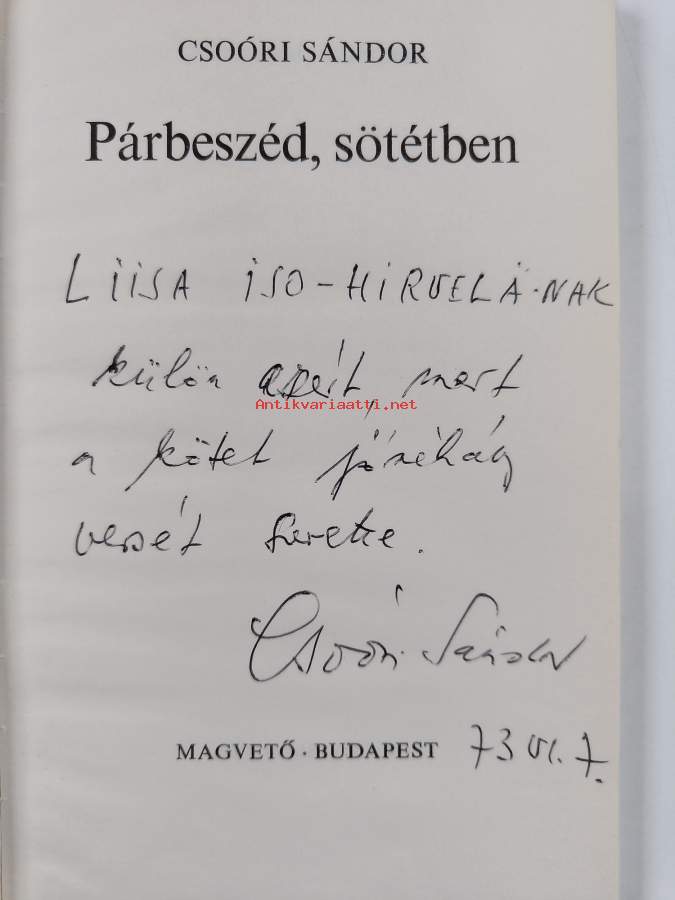 CSOÓRI SÁNDOR
Párbeszéd, sötétben
LIISA ISO-HIRVELÄ-NAK
külön azért, mert
Antikvariaatti.net
a kötet jónéhány
versét szerette.
Csoóri Sándor
MAGVETŐ · BUDAPEST 73 VI. 7.